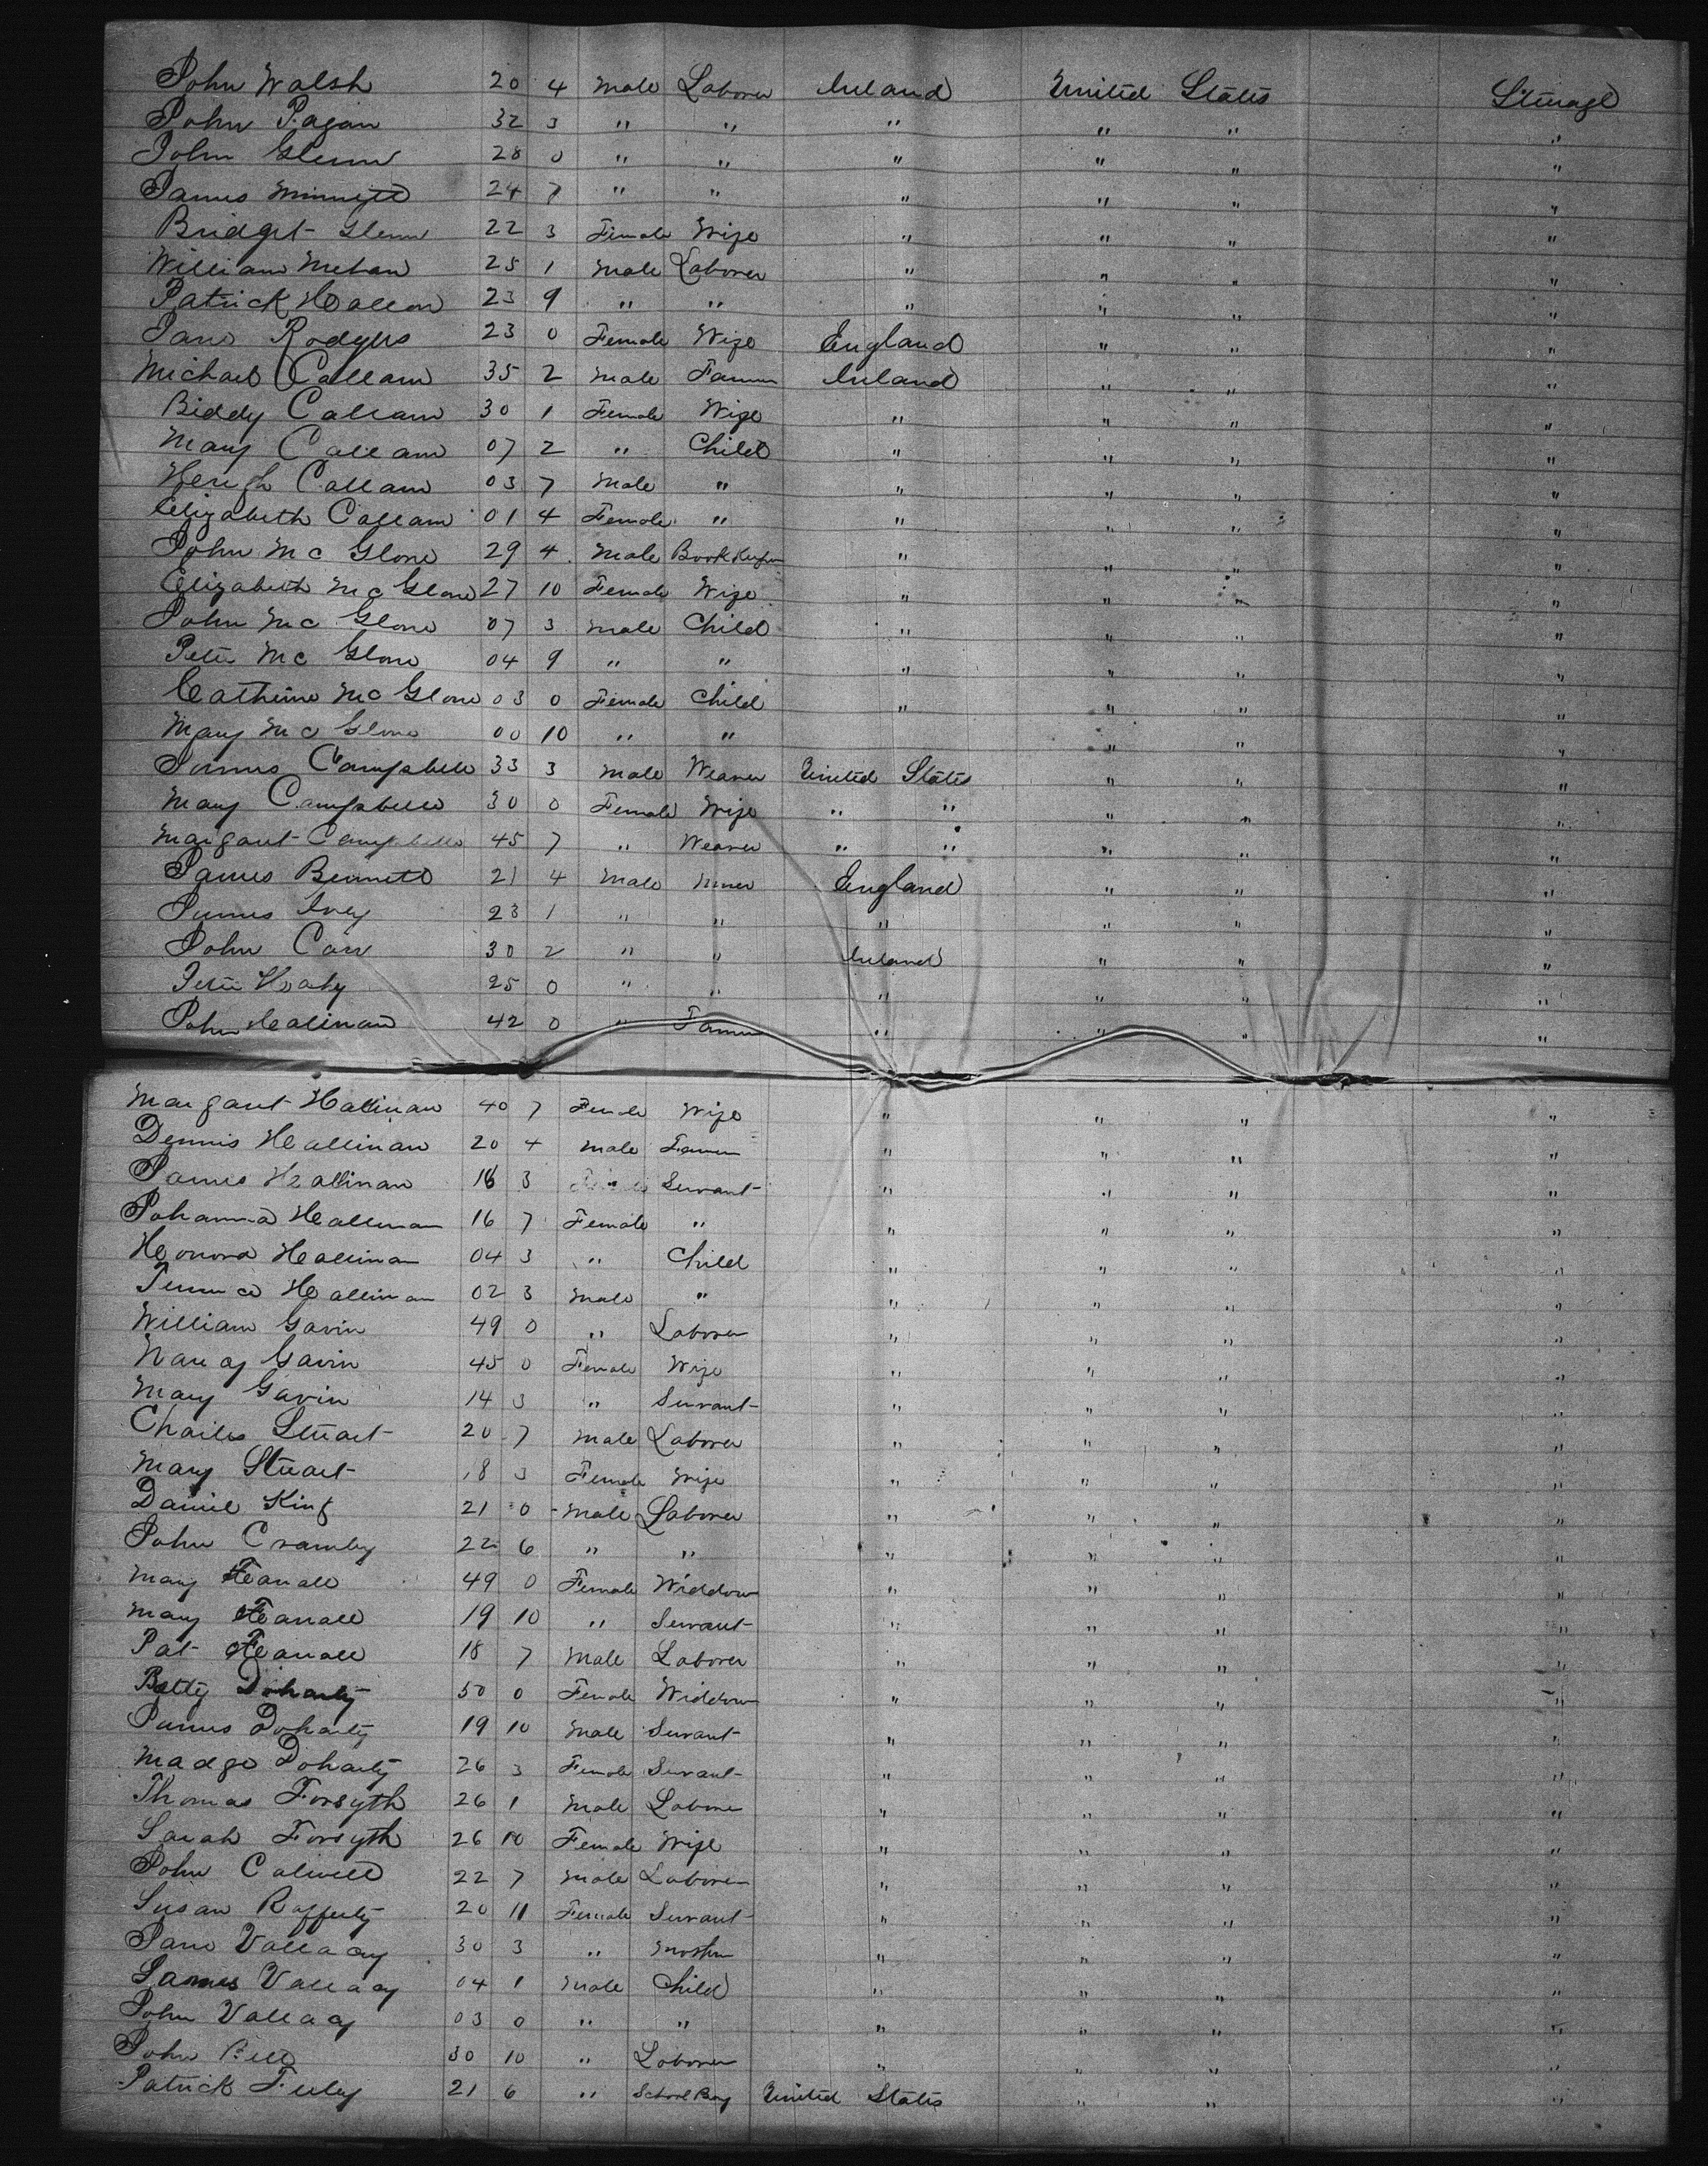 John Walsh 20 4 Male Laborer Ireland United States Steerage
John Pagan 32 3 " " " " " "
John Glenn 28 0 " " " " " "
James Minnett 24 7 " " " " " "
Bridget Glenn 22 3 Female Wife " " " "
William Mehan 25 1 Male Laborer " " " "
Patrick Hallon 23 9 " " " " " "
Jane Rodgers 23 0 Female Wife England " " "
Michael Callam 35 2 Male Farmer Ireland " " "
Biddy Callam 30 1 Female Wife " " " "
Mary Callam 07 2 " Child " " " "
Callam 03 7 Male " " " " "
Elizabeth Callam 01 4 Female " " " " "
John Mc Glone 29 4 Male Book Keeper " " " "
Elizabeth Mc Glone 27 10 Female Wife " " " "
John Mc Glone 07 3 Male Child " " " "
Peter Mc Glone 04 9 " " " " " "
Catherine Mc Glone 03 0 Female Child " " " "
Mary Mc Glone 00 10 " " " " "
James Campbell 33 3 Male Weaver United States " " "
Mary Campbell 30 0 Female Wife " " " " "
Margaret Campbell 45 7 " Weaver " " " " "
James Bennett 21 4 Male Miner England " " "
James Ivey 23 1 " " " " " "
John Carr 30 2 " " Ireland " " "
Peter Healy 25 0 " " " " " "
John Hallinan 42 0 " Farmer " " " "
Margaret Hallinan 40 7 Female Wife " " " "
Dennis Hallinan 20 4 Male Farmer " " " "
James Hallinan 18 3 Servant " " " "
Johanna Hallinan 16 7 Female " " " " "
Honora Hallinan 04 3 " Child " " " "
Hallinan 02 3 Male " " " " "
William Gavin 49 0 " Laborer " " " "
Nancy Gavin 45 0 Female Wife " " " "
Mary Gavin 14 3 " Servant " " " "
Charles Stuart 20 7 Male Laborer " " " "
Mary Stuart 18 3 Female Wife " " " "
Daniel King 21 0 Male Laborer " " " "
John Cramby 22 6 " " " " " "
Mary 49 0 Female Widdow " " " "
Mary 19 10 " Servant " " " "
Pat 18 7 Male Laborer " " " "
Betty Doharty 50 0 Female Widdow " " " "
James Doharty 19 10 Male Servant " " " "
Madge Doharty 26 3 Female Servant " " " "
Thomas Forsyth 26 1 Male Laborer " " " "
Sarah Forsyth 26 10 Female Wife " " " "
John Calwell 22 7 Male Laborer " " " "
Susan Rafferty 20 11 Female Servant " " " "
Jane Vallaay 30 3 " Mother " " " "
James Vallaay 04 1 Male Child " " " "
John Vallaay 03 0 " " " " " "
John Bell 30 10 " Laborer " " " "
Patrick Feeley 21 6 " School Boy United States " " "